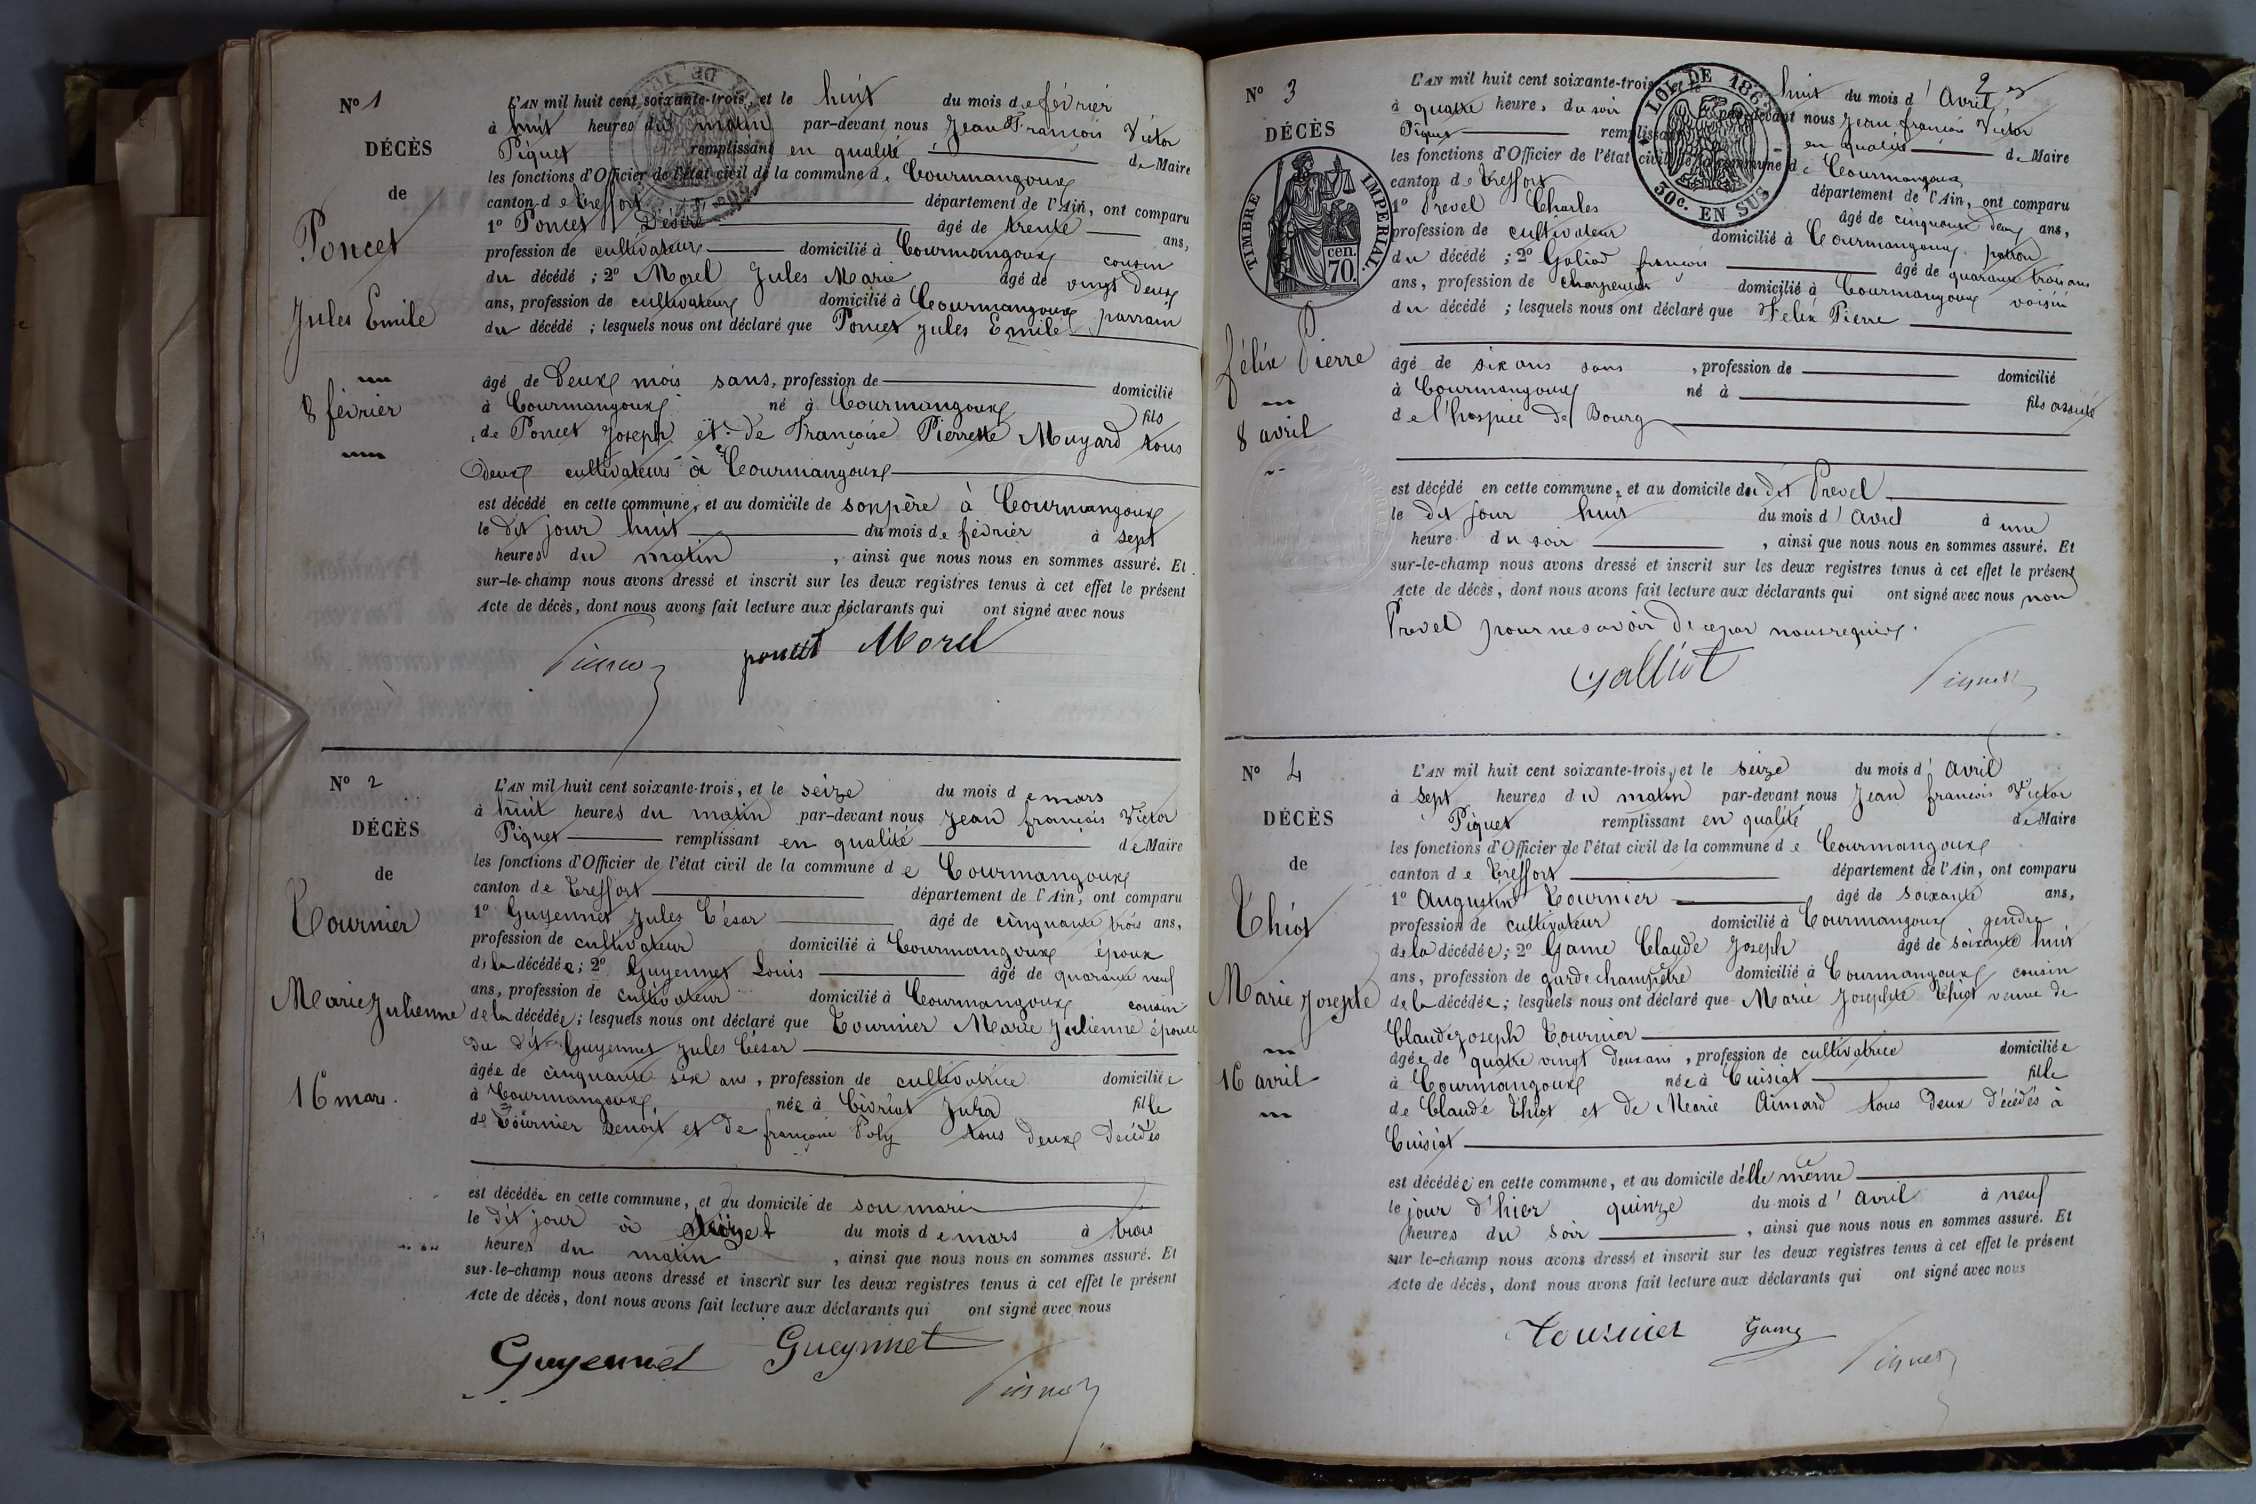 Nº 1
DÉCÈS
de
Poncet
Jules Emile
8 février
L'AN mil huit cent soixante-trois, et le huit du mois de février
à huit heures du matin par-devant nous Jean François Victor
Piquet remplissant en qualité de Maire
les fonctions d'Officier de l'état civil de la commune de Courmangoux
canton de Treffort département de l'Ain, ont comparu
1º Poncet Désiré âgé de trente ans,
profession de cultivateur domicilié à Courmangoux cousin
du décédé ; 2º Morel Jules Marie âgé de vingt deux
ans, profession de cultivateur domicilié à Courmangoux parrain
du décédé ; lesquels nous ont déclaré que Poncet Jules Emile
âgé de Deux mois sans, profession de domicilié
à Courmangoux né à Courmangoux fils
de Poncet Joseph et de Françoise Pierrette Muyard tous
deux cultivateurs à Courmangoux
est décédé en cette commune, et au domicile de son père à Courmangoux
le dit jour huit du mois de février à sept
heures du matin, ainsi que nous nous en sommes assuré. Et
sur-le-champ nous avons dressé et inscrit sur les deux registres tenus à cet effet le présent
Acte de décès, dont nous avons fait lecture aux déclarants qui ont signé avec nous
poncet Morel
Nº 2
DÉCÈS
de
Tournier
Marie Julienne
16 mars.
L'AN mil huit cent soixante-trois, et le seize du mois de mars
à huit heures du matin par-devant nous Jean françois Victor
Piquet remplissant en qualité de Maire
les fonctions d'Officier de l'état civil de la commune de Courmangoux
canton de Treffort département de l'Ain, ont comparu
1º Guyennet Jules César âgé de cinquante trois ans,
profession de cultivateur domicilié à Courmangoux époux
de la décédée ; 2º Guyennet Louis âgé de quarante neuf
ans, profession de cultivateur domicilié à Courmangoux cousin
de la décédée ; lesquels nous ont déclaré que Tournier Marie Julienne épouse
du dit Guyennet Jules César
âgée de cinquante six ans, profession de cultivatrice domiciliée
à Courmangoux née à Civriat Jura fille
de Tournier Benoît et de françoise Poly tous deux décédés
est décédée en cette commune, et au domicile de son mari
le dit jour du mois de mars à trois
heures du matin, ainsi que nous nous en sommes assuré. Et
sur-le-champ nous avons dressé et inscrit sur les deux registres tenus à cet effet le présent
Acte de décès, dont nous avons fait lecture aux déclarants qui ont signé avec nous
Guyennet Gueynnet
2
Nº 3
DÉCÈS
TIMBRE IMPÉRIAL.
70 cen.
félix Pierre
8 avril
LOI DE 1862
30c. EN SUS
L'AN mil huit cent soixante-trois, et le huit du mois d'Avril
à quatre heures du soir par-devant nous Jean françois Victor
Piquet remplissant en qualité de Maire
les fonctions d'Officier de l'état civil de la commune de Courmangoux
canton de Treffort département de l'Ain, ont comparu
1º Prevel Charles âgé de cinquante deux ans,
profession de cultivateur domicilié à Courmangoux patron
du décédé ; 2º Galiod françois âgé de quarante trois ans
ans, profession de charpentier domicilié à Courmangoux voisin
du décédé ; lesquels nous ont déclaré que Félix Pierre
âgé de six ans sans, profession de domicilié
à Courmangoux né à fils assisté
de l'hospice de Bourg
est décédé en cette commune, et au domicile du dit Prevel
le dit jour huit du mois d'avril à une
heure du soir, ainsi que nous nous en sommes assuré. Et
sur-le-champ nous avons dressé et inscrit sur les deux registres tenus à cet effet le présent
Acte de décès, dont nous avons fait lecture aux déclarants qui ont signé avec nous non
Prevel pour ne savoir de ce par nous requis.
Galliot Piquet
Nº 4
DÉCÈS
de
Thiot
Marie Josephte
16 avril
L'AN mil huit cent soixante-trois, et le seize du mois d'avril
à sept heures du matin par-devant nous Jean françois Victor
Piquet remplissant en qualité de Maire
les fonctions d'Officier de l'état civil de la commune de Courmangoux
canton de Treffort département de l'Ain, ont comparu
1º Augustin Tournier âgé de soixante ans,
profession de cultivateur domicilié à Courmangoux gendre
de la décédée ; 2º Game Claude Joseph âgé de soixante huit
ans, profession de garde champêtre domicilié à Courmangoux cousin
de la décédée ; lesquels nous ont déclaré que Marie Josephte Thiot veuve de
Claude Joseph Tournier
âgée de quatre vingt deux ans, profession de cultivatrice domiciliée
à Courmangoux née à Cuisiat fille
de Claude Thiot et de Marie Aimard tous deux décédés à
Cuisiat
est décédée en cette commune, et au domicile d'elle même
le jour d'hier quinze du mois d'avril à neuf
heures du soir, ainsi que nous nous en sommes assuré. Et
sur-le-champ nous avons dressé et inscrit sur les deux registres tenus à cet effet le présent
Acte de décès, dont nous avons fait lecture aux déclarants qui ont signé avec nous
Tournier Game Piquet